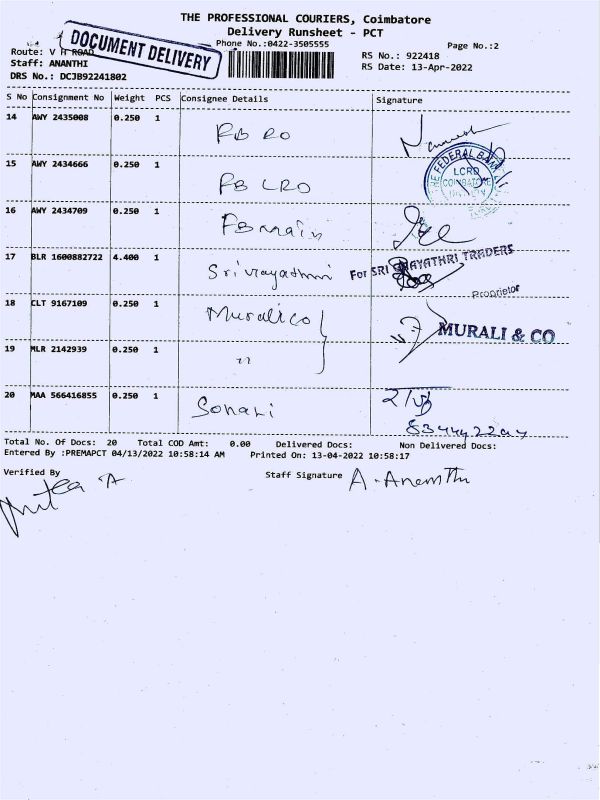 THE PROFESSIONAL COURIERS, Coimbatore
Delivery Runsheet - PCT
Phone No.:0422-3505555
Page No.:2
DOCUMENT DELIVERY
Route: V H ROAD
Staff: ANANTHI
DRS No.: DCJB92241802
RS No.: 922418
RS Date: 13-Apr-2022
S No Consignment No Weight PCS Consignee Details Signature
14 AWY 2435008 0.250 1 FB RO
15 AWY 2434666 0.250 1 FB LRO
THE FEDERAL BANK
LCRD
COIMBATORE
16 AWY 2434709 0.250 1 FB main
17 BLR 1600882722 4.400 1
For SRI GAYATHRI TRADERS
Proprietor
18 CLT 9167109 0.250 1 Murali co
MURALI & CO
19 MLR 2142939 0.250 1 "
20 MAA 566416855 0.250 1 Sonali
Total No. Of Docs: 20 Total COD Amt: 0.00 Delivered Docs: Non Delivered Docs:
Entered By :PREMAPCT 04/13/2022 10:58:14 AM Printed On: 13-04-2022 10:58:17
Verified By
Staff Signature A. Ananthi